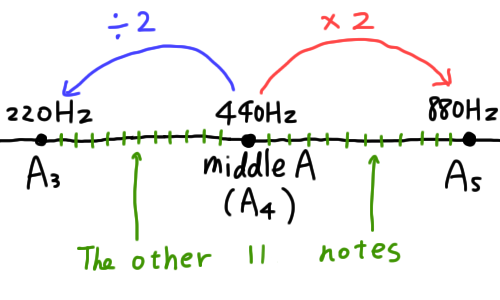 ÷2 ×2
220Hz 440Hz 880Hz
A3 middle A A5
(A4)
The other 11 notes